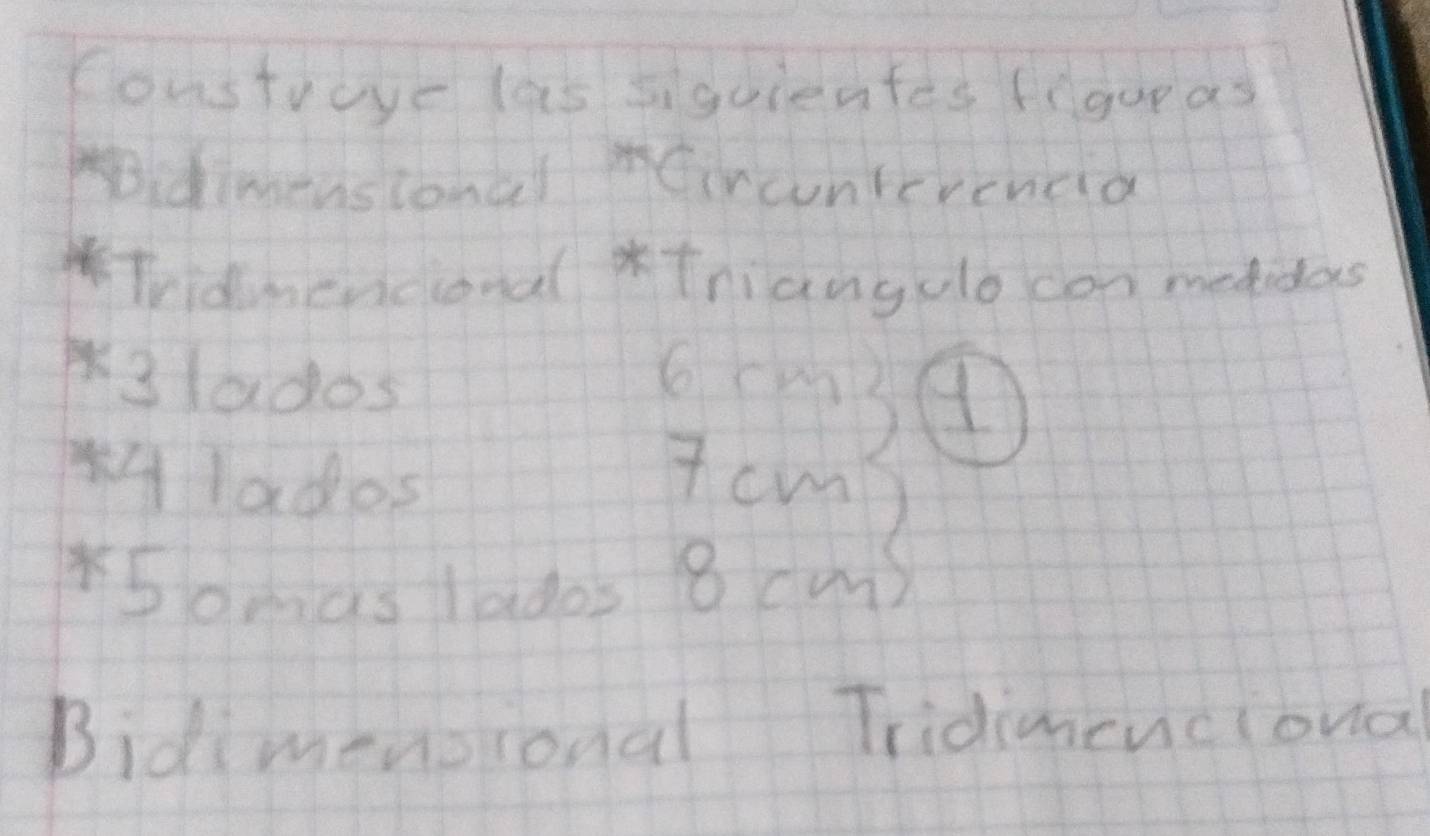 Construye las siguientes figuras
*Bidimensional *Circunferencia
*Tridimencional *Triangulo con medidas
*3 lados 6 cm } ①
*4 lados 7 cm }
*5 o mas lados 8 cm }
Bidimensional Tridimencional